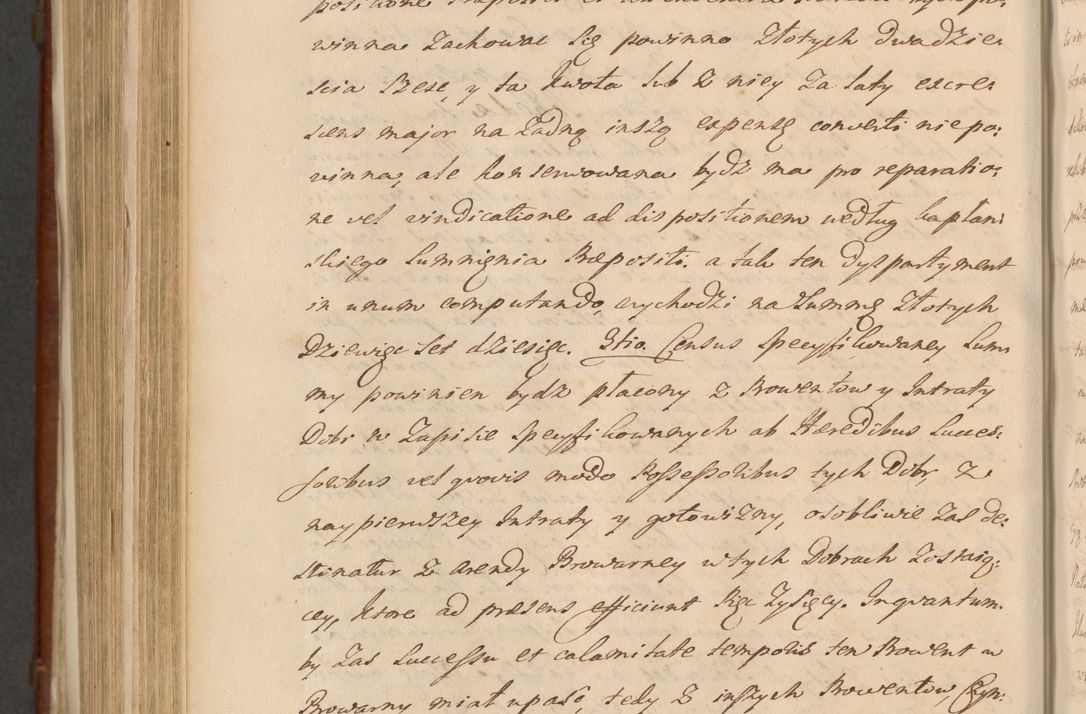 winna zachować się powinno Złotych dwadzie-
scia szesc, y ta kwota lub z niey za laty excre-
scens major na żadną inszą expensę converti niepo-
winna, ale konserwowana bydź ma pro reparatio-
ne vel vindicatione ad dispositionem według kapłan-
skiego sumnienia Præpositi. a tak ten dyspartyment
in unum computando, wychodzi na summę Złotych
Dziewięc set dziesięc. 3tio. Census specyfikowaney sum-
my powinien bydz płacony z Prowentow y Intraty
Dobr w Zapisie specyfikowanych ab Hæredibus succes-
soribus vel quovis modo Possessoribus tych Dobr, z
naypierwszey Intraty y gotowizny, osobliwie zas de-
stinatur z Arendy Browarney w tych Dobrach zostaią-
cey, ktore ad præsens efficiunt Pięc Tysięcy. Inquantum-
by zas successu et calamitate temporis ten Prowent w
Browarny miał upaść, tedy z inszych Prowentow, Czyn-